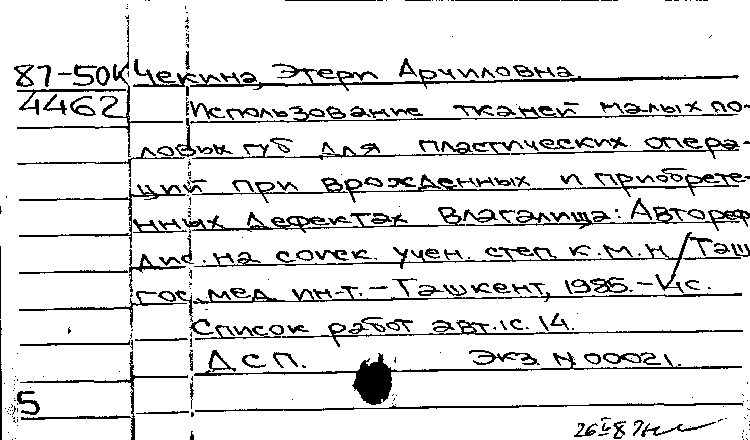 87-50К Чекина, Этери Арчиловна.
4462 Использование тканей малых по-
ловых губ для пластических опера-
ций при врожденных и приобрете-
нных дефектах влагалища: Автореф
дис. на соиск. учен. степ. к.м.н / Таш
гос. мед. ин-т. - Ташкент, 1985. -
Список работ авт.: с. 14.
ДСП. Экз N 00021.
5